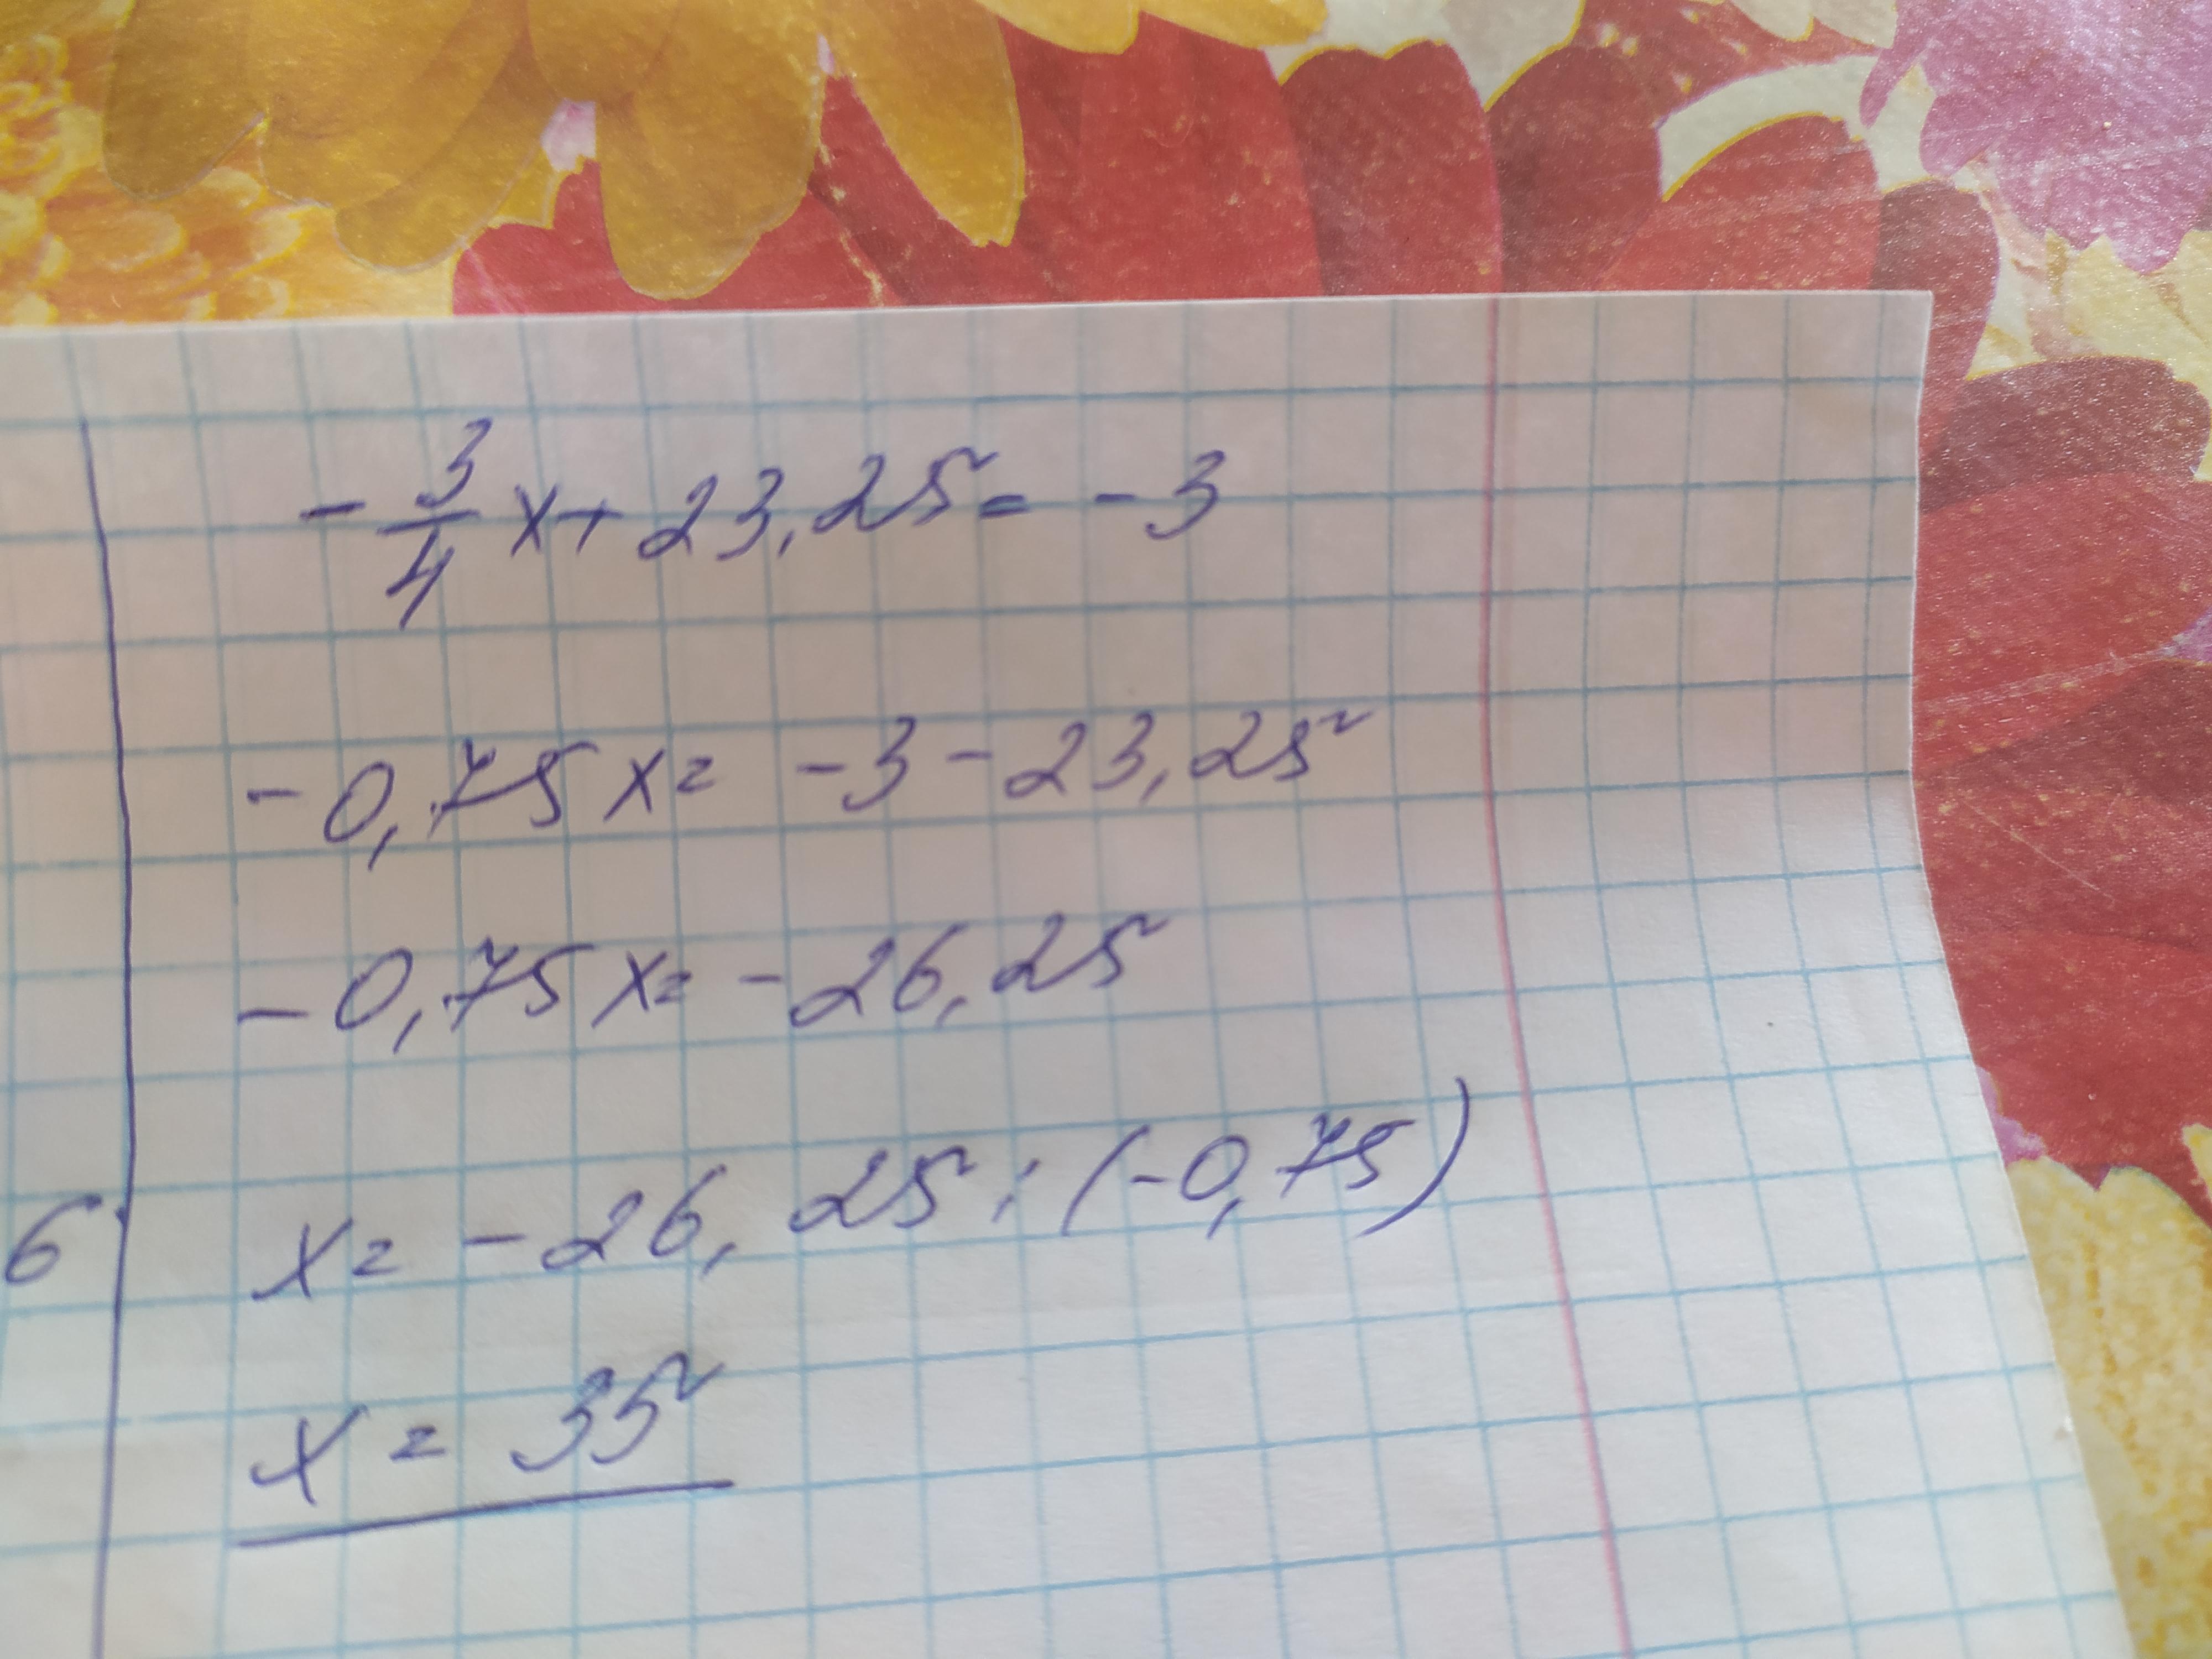 -3/4 x + 23,25 = -3
-0,75x = -3 - 23,25
-0,75x = -26,25
6
x = -26,25 : (-0,75)
x = 35